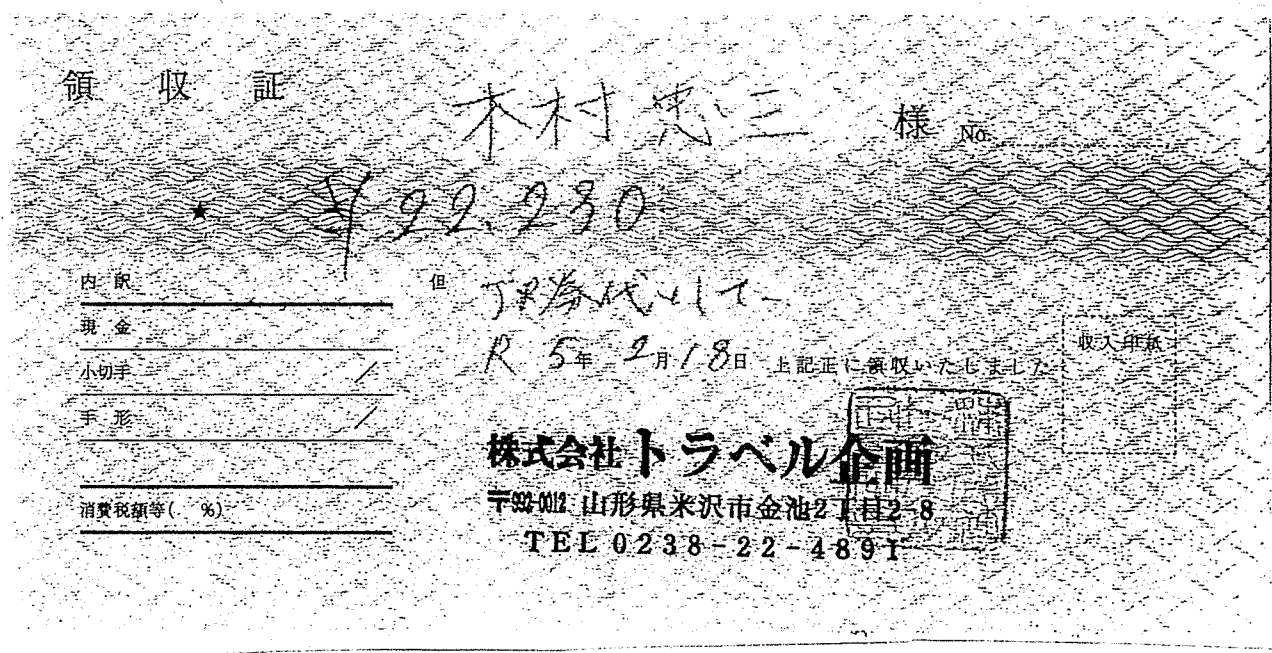 領 収 証
木村 忠三 様 No.
★ ¥22,230
内 訳
現 金
小切手
手 形
消費税額等( %)
但 JR券代として
R 5年 2月18日 上記正に領収いたしました
収入印紙
株式会社トラベル企画
〒992-0012 山形県米沢市金池2丁目2-8
TEL 0238-22-4891